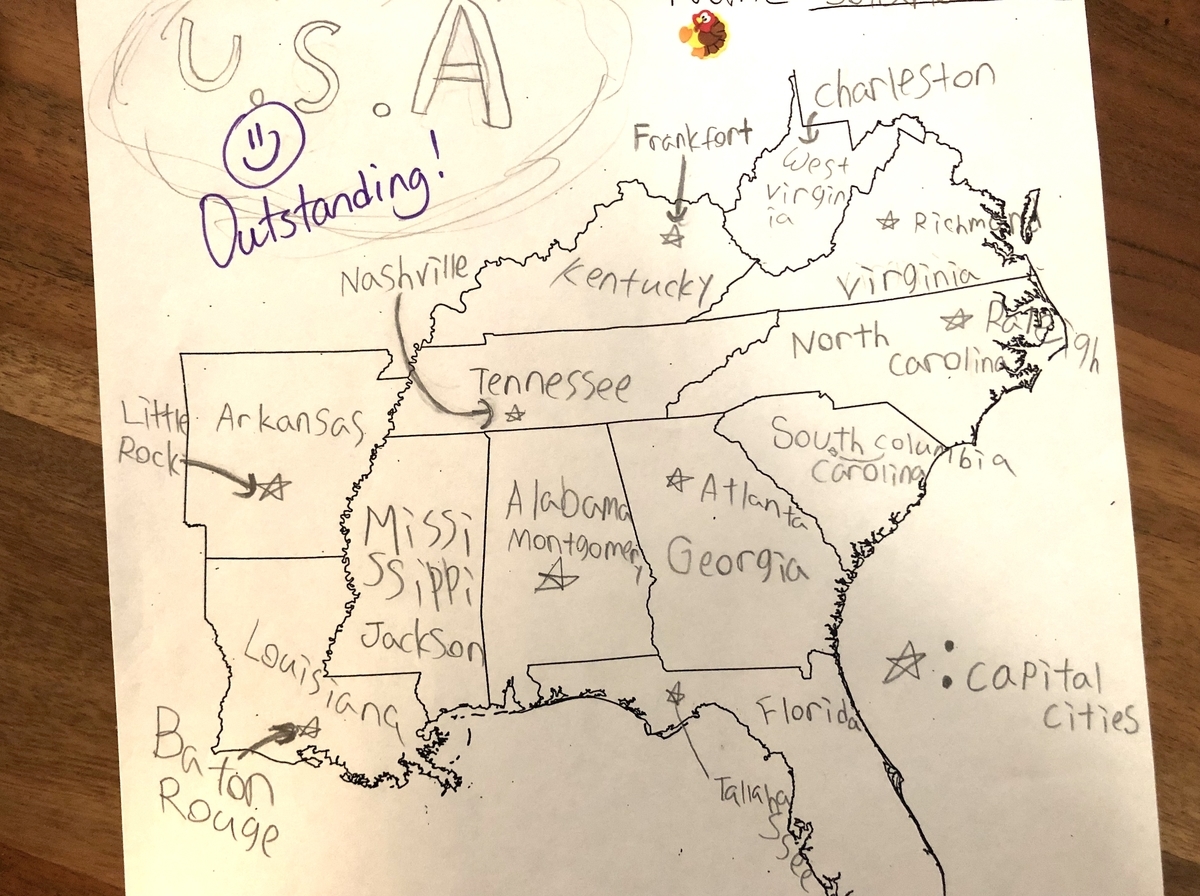 U.S.A
Outstanding!
Charleston
Frankfort
West
Virgin
ia
Richmond
Nashville
Kentucky
Virginia
Raleigh
North
Carolina
Tennessee
Little
Rock
Arkansas
South Columbia
Carolina
Atlanta
Alabama
Montgomery
Missi
ssippi
Georgia
Jackson
Louisiana
capital
cities
Florida
Baton
Rouge
Tallaha
ssee